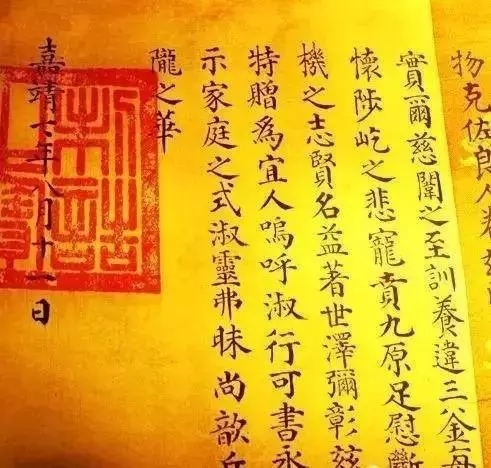 物克佐良人
實爾慈闈之至訓養違三釡每
懷陟屺之悲寵賁九原足慰斷
機之志賢名益著世澤彌彰玆
特贈爲宜人嗚呼淑行可書永
示家庭之式淑靈弗昧尚歆丘
隴之華
嘉靖 年八月十一日